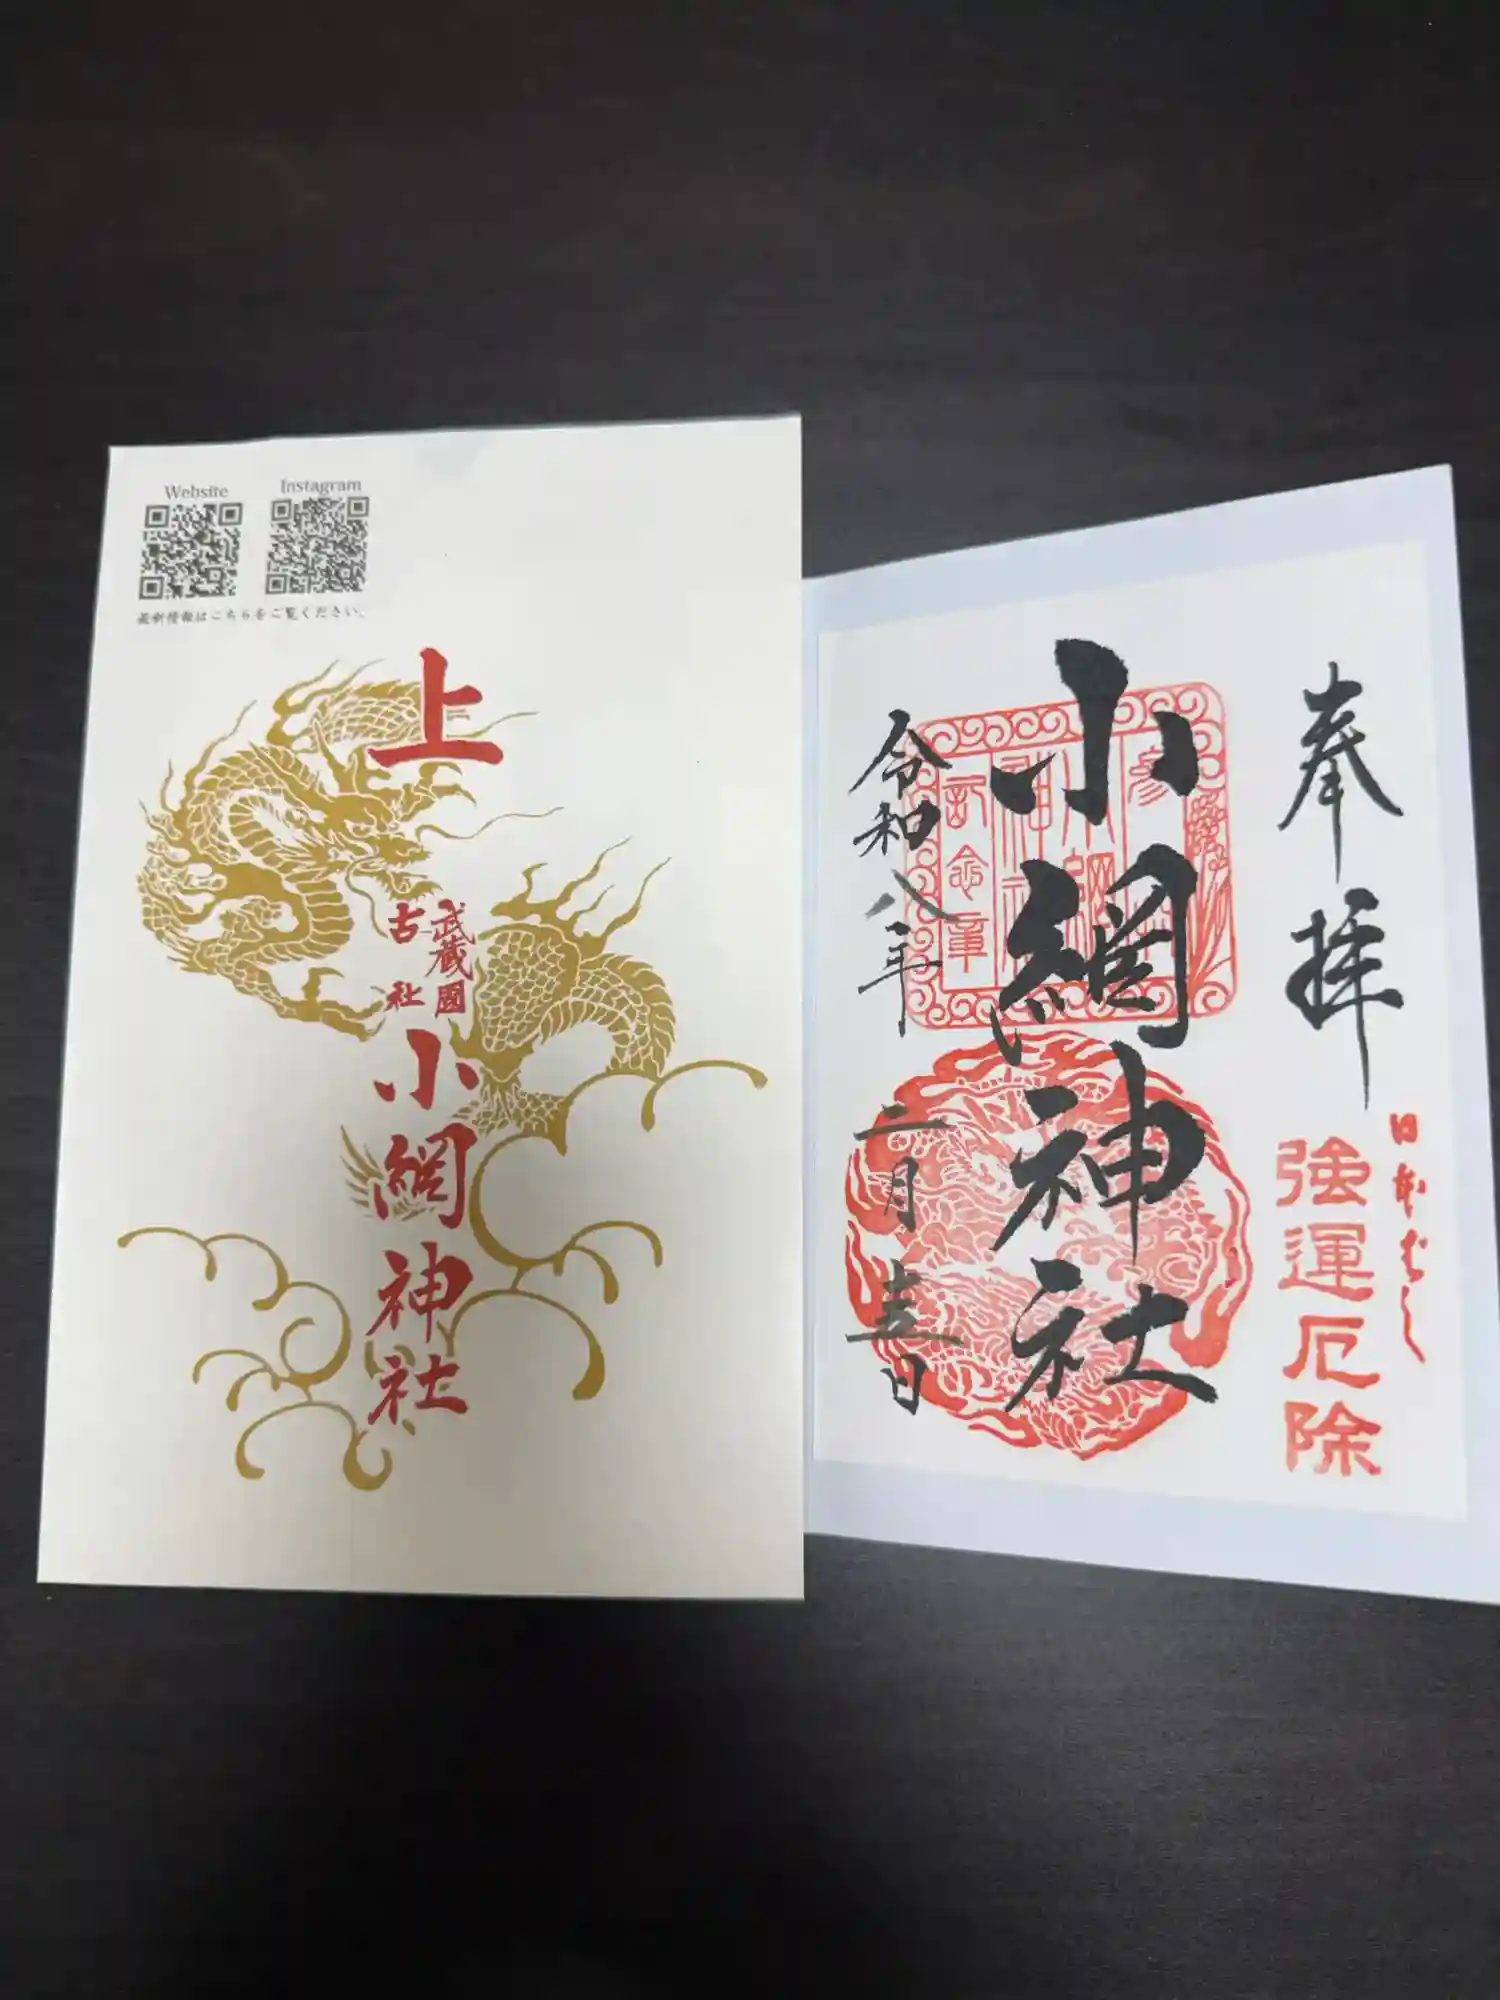 Website
Instagram
最新情報はこちらをご覧ください。
上
武蔵國
古社
小網神社
奉拝
日本ばし
強運厄除
小網神社
参拝
小網
神社
記念章
令和八年
二月
日